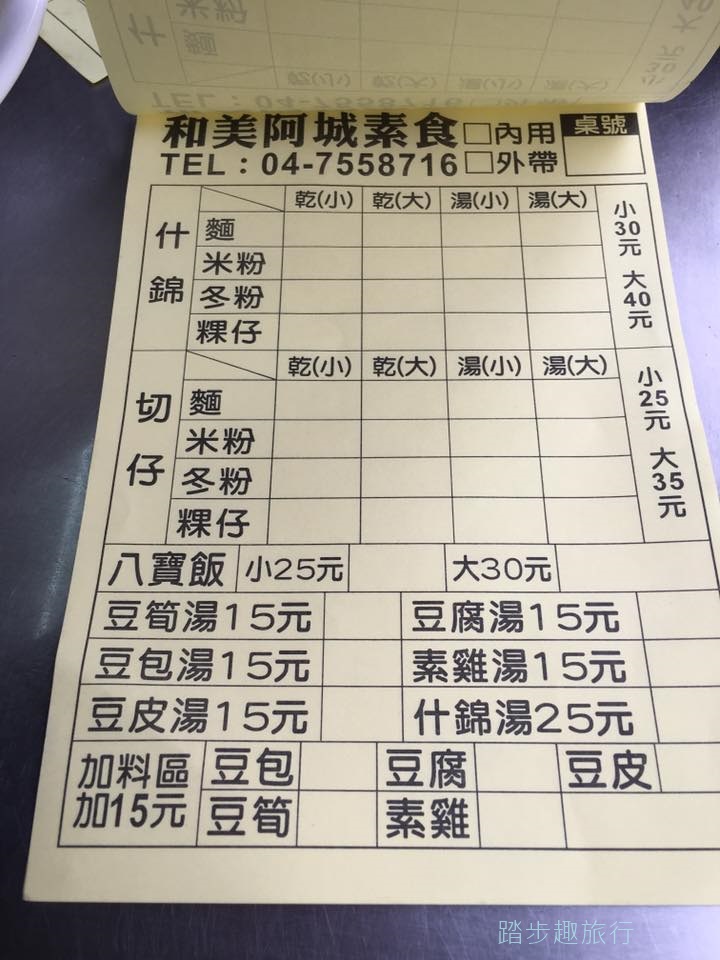 和美阿城素食 □內用 桌號
TEL：04-7558716 □外帶
什錦 乾(小) 乾(大) 湯(小) 湯(大) 小30元 大40元
麵
米粉
冬粉
粿仔
切仔 乾(小) 乾(大) 湯(小) 湯(大) 小25元 大35元
麵
米粉
冬粉
粿仔
八寶飯 小25元 大30元
豆筍湯15元 豆腐湯15元
豆包湯15元 素雞湯15元
豆皮湯15元 什錦湯25元
加料區 豆包 豆腐 豆皮
加15元 豆筍 素雞
踏步趣旅行